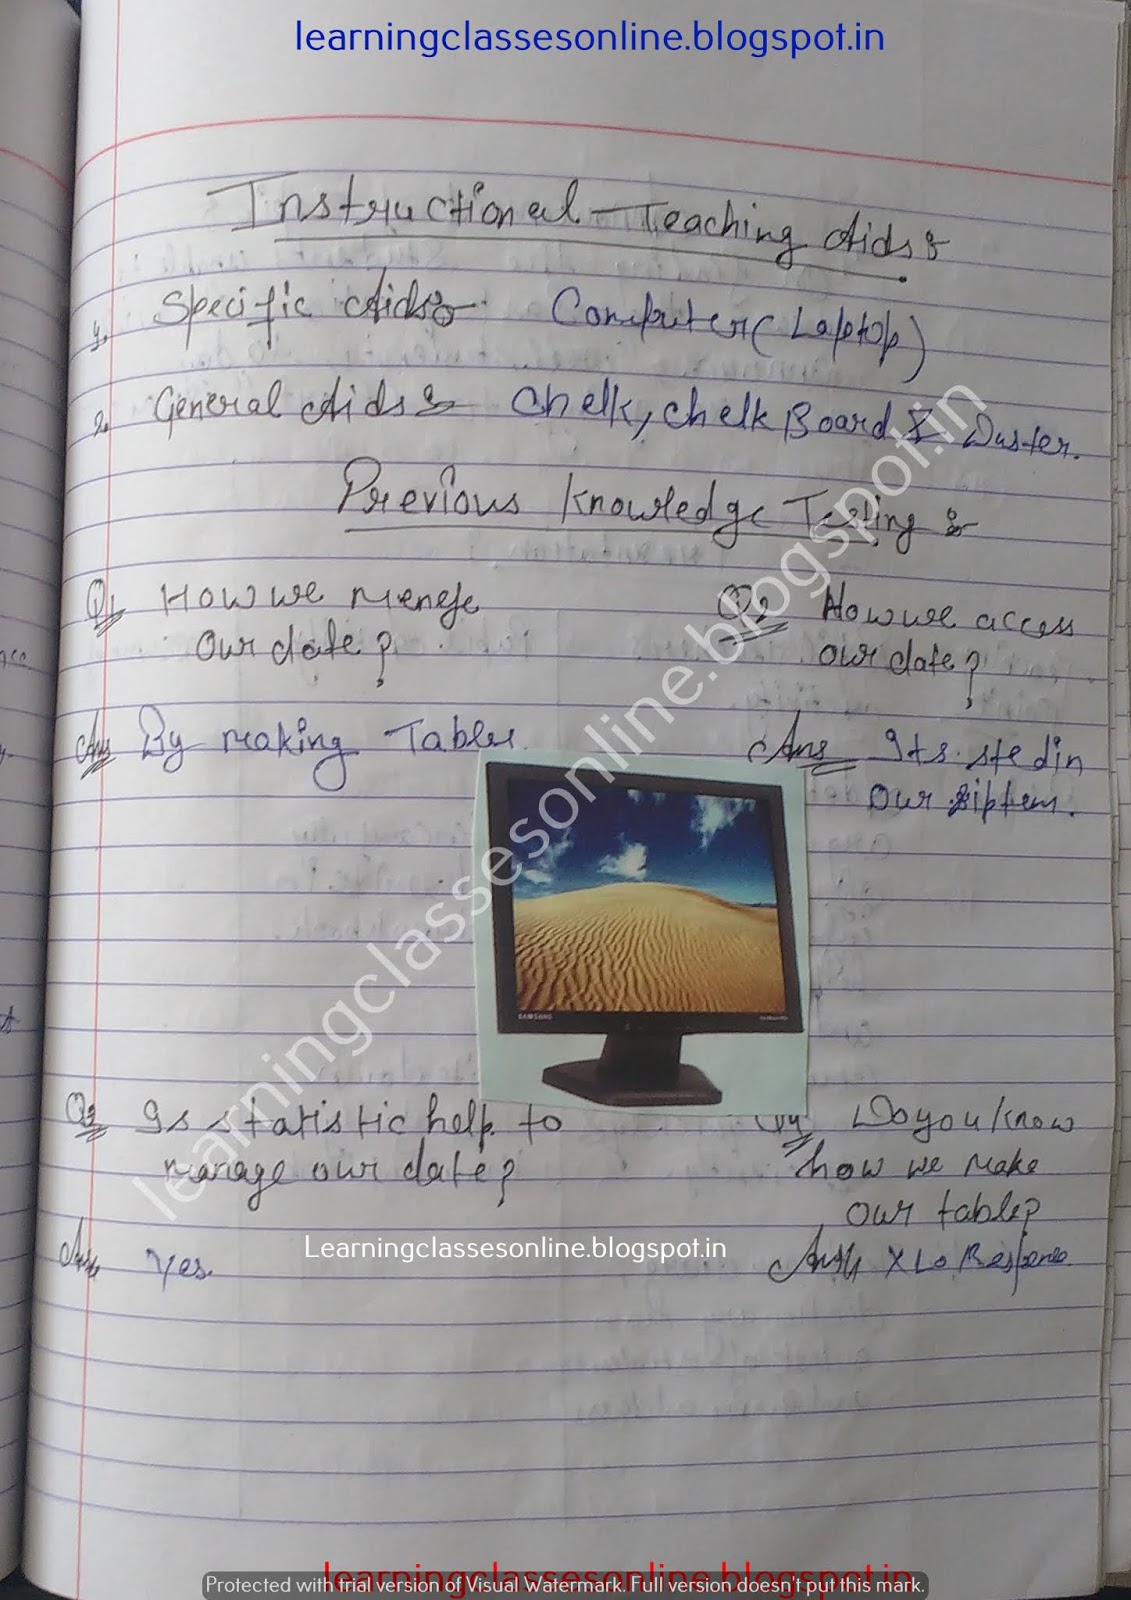 learningclassesonline.blogspot.in
Instructional Teaching Aids :-
1. Specific Aids :- Computer (Laptop)
2. General Aids :- Chelk, Chelk Board & Duster.
Previous Knowledge Testing :-
Q1 How we menege
our date?
Ans By making Tables.
Q2 How we access
our date?
Ans Its in
our
SAMSUNG
Q3 Is statistic help to
manage our date?
Ans Yes.
Q4 Do you know
how we make
our table?
Ans X No Response.
learningclassesonline.blogspot.in
Learningclassesonline.blogspot.in
learningclassesonline.blogspot.in
Protected with trial version of Visual Watermark. Full version doesn't put this mark.